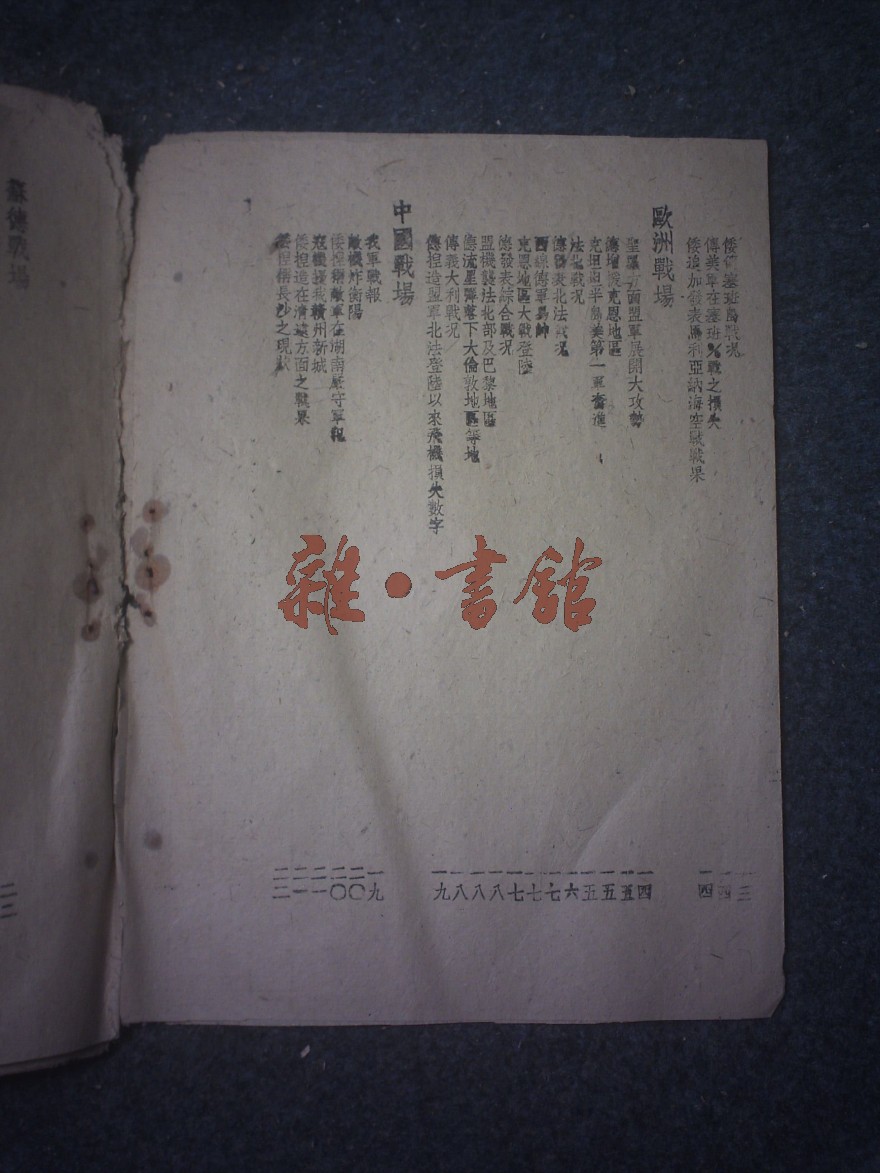 倭傳塞班島戰况
傳美軍在塞班島戰之損失
倭追加發表馬利亞納海空戰戰果
歐洲戰場
聖羅方面盟軍展開大攻勢
德增援克恩地區
克坦丁半島美第一軍奮進
法北戰况
德發表北法戰况
西線德軍易帥
克恩地區大戰登陸
德發表綜合戰况
盟機襲法北部及巴黎地區
德流星彈落下大倫敦地區等地
傳義大利戰况
德捏造盟軍北法登陸以來飛機損失數字
中國戰場
我軍戰報
敵機炸衡陽
倭捏稱敵軍在湖南嚴守軍紀
寇機擾我贛州新城
倭捏造在清遠方面之戰果
倭捏稱長沙之現狀
一三
一四
一四
一四
一五
一五
一五
一六
一七
一七
一七
一八
一八
一八
一九
一九
二〇
二〇
二一
二一
二二
蘇德戰場
雜·書館